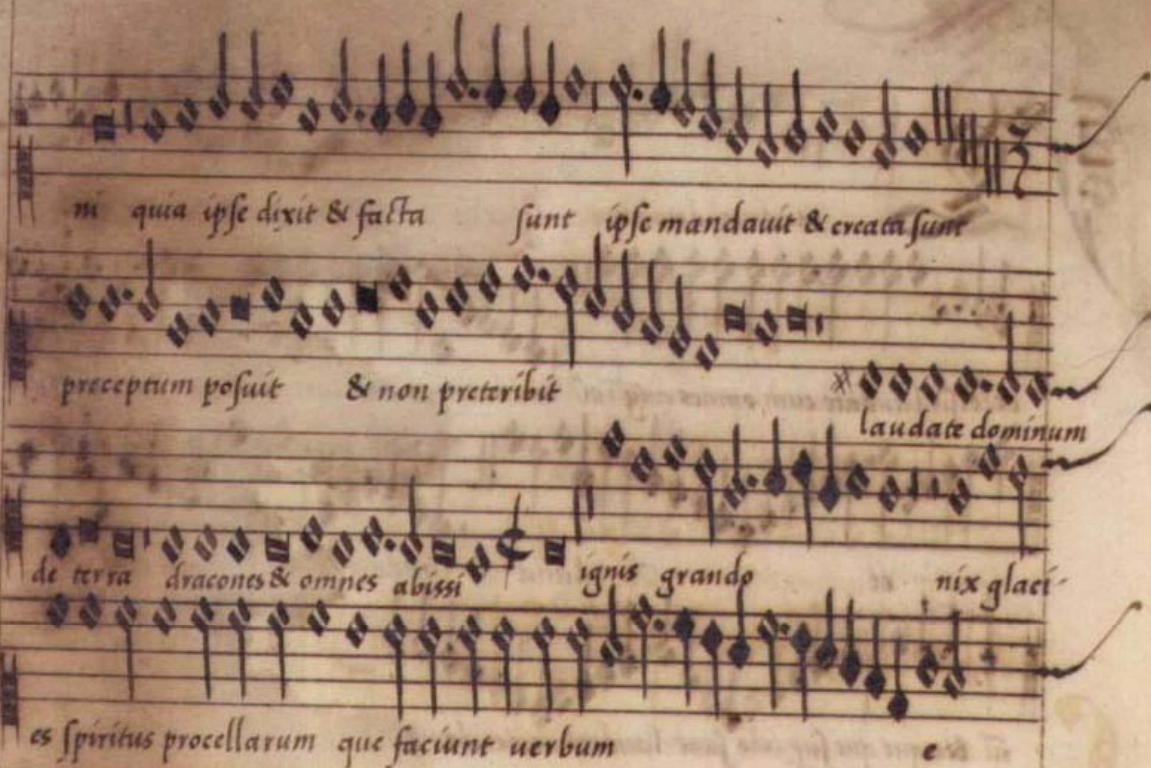 ni quia ipse dixit & facta sunt ipse mandavit & creata sunt
preceptum posuit & non preteribit
laudate dominum
de terra dracones & omnes abissi ignis grando nix glaci-
es spiritus procellarum que faciunt verbum e